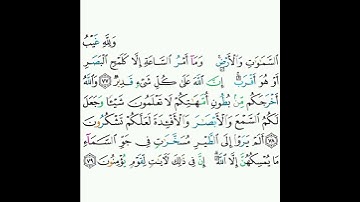 وَلِلَّهِ غَيْبُ
السَّمَٰوَٰتِ وَالْأَرْضِ ۚ وَمَا أَمْرُ السَّاعَةِ إِلَّا كَلَمْحِ الْبَصَرِ
أَوْ هُوَ أَقْرَبُ ۚ إِنَّ اللَّهَ عَلَىٰ كُلِّ شَيْءٍ قَدِيرٌ ٧٧ وَاللَّهُ
أَخْرَجَكُم مِّنۢ بُطُونِ أُمَّهَٰتِكُمْ لَا تَعْلَمُونَ شَيْـًٔا وَجَعَلَ
لَكُمُ السَّمْعَ وَالْأَبْصَٰرَ وَالْأَفْـِٔدَةَ لَعَلَّكُمْ تَشْكُرُونَ
٧٨ أَلَمْ يَرَوْا إِلَى الطَّيْرِ مُسَخَّرَٰتٍ فِى جَوِّ السَّمَآءِ
مَا يُمْسِكُهُنَّ إِلَّا اللَّهُ ۗ إِنَّ فِى ذَٰلِكَ لَءَايَٰتٍ لِّقَوْمٍ يُؤْمِنُونَ ٧٩